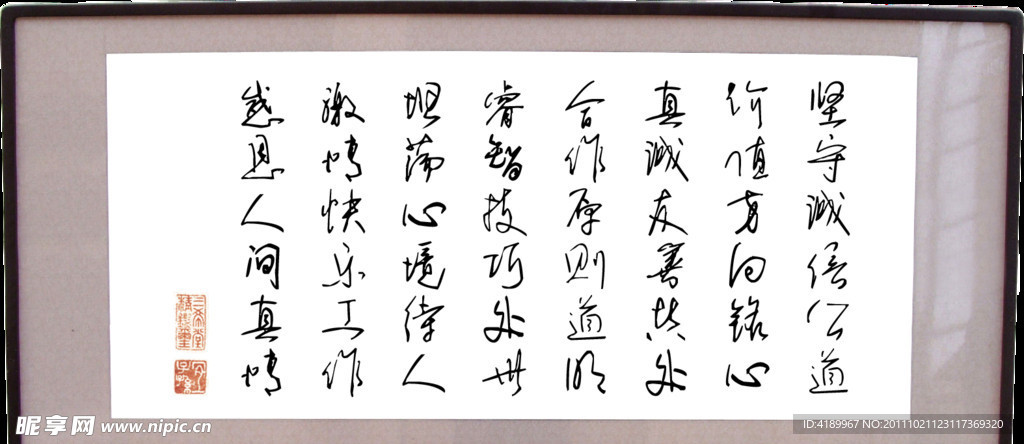 坚守诚信公道
价值方向铭心
真诚友善共处
合作原则道明
睿智技巧处世
坦荡心境待人
激情快乐工作
感恩人间真情
昵享网 www.nipic.cn
ID:4189967 NO:20111021123117369320